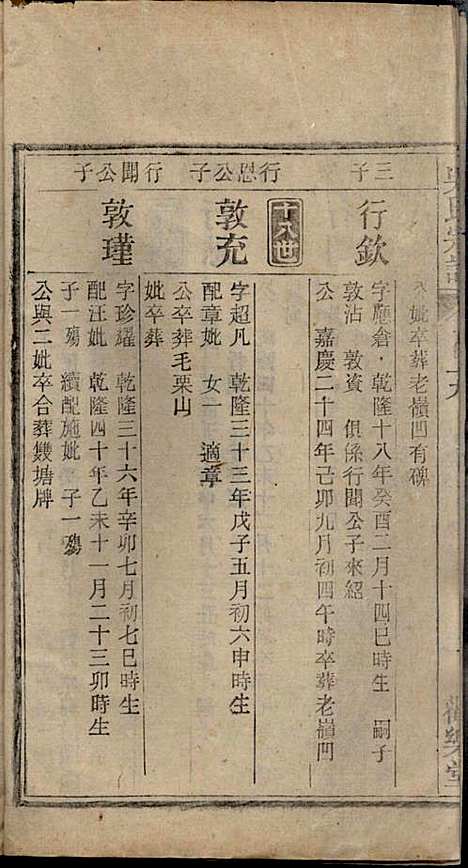 妣卒葬老嶺凹有碑
三子
行欽
字廳倉乾隆十八年癸酉二月十四巳時生 嗣子
敦沾 敦資 俱係行聞公子來紹
公 嘉慶二十四年己卯九月初四午時卒葬老嶺凹
十八世
行愿公子
敦充
字超凡 乾隆三十三年戊子五月初六申時生
配章妣 女一 適章
公卒葬毛栗山
妣卒葬
行聞公子
敦瑾
字珍耀 乾隆三十六年辛卯七月初七巳時生
配汪妣 乾隆四十年乙未十一月二十三卯時生
子一殤 續配施妣 子一殤
公與二妣卒合葬雙塘牌